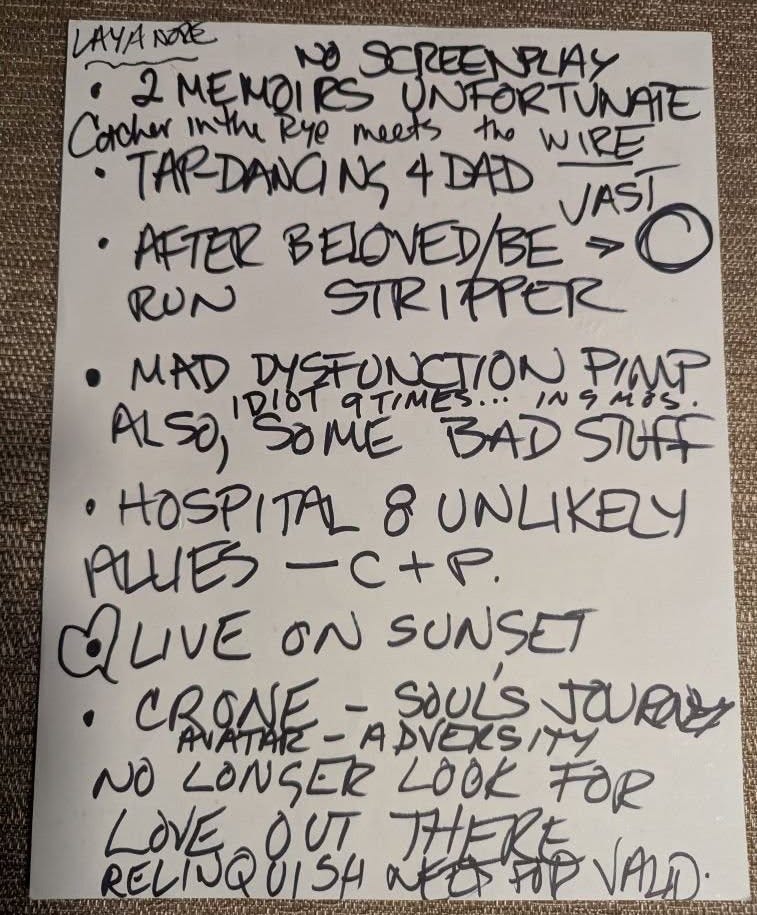 LAYA NOPE
NO SCREENPLAY
• 2 MEMOIRS UNFORTUNATE
Catcher in the Rye meets the WIRE
• TAP-DANCING 4 DAD
VAST
• AFTER BELOVED/BE ⇒ O
RUN STRIPPER
• MAD DYSFUNCTION PIMP
IDIOT 9 TIMES... IN 9 MOS.
ALSO, SOME BAD STUFF
• HOSPITAL 8 UNLIKELY
ALLIES — C + P.
• LIVE ON SUNSET
• CRONE - SOUL'S JOURNEY
AVATAR - ADVERSITY
NO LONGER LOOK FOR
LOVE OUT THERE
RELINQUISH NEED FOR VALID.